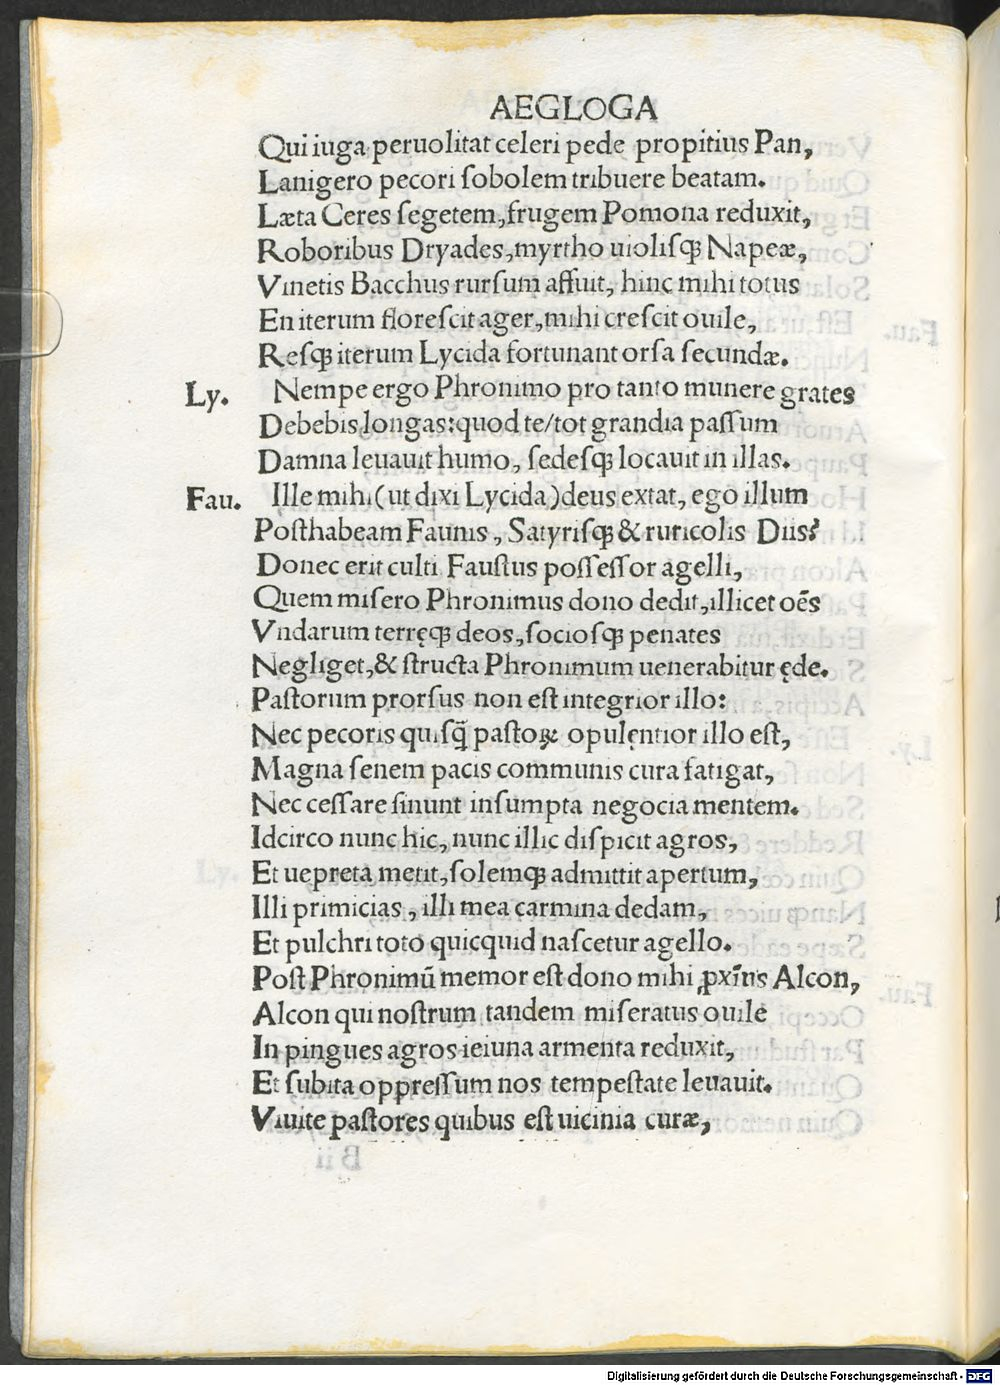 AEGLOGA
Qui iuga peruolitat celeri pede propitius Pan,
Lanigero pecori ſobolem tribuere beatam.
Læta Ceres ſegetem, frugem Pomona reduxit,
Roboribus Dryades, myrtho uiolisqꝫ Napeæ,
Vinetis Bacchus rurſum affuit, hinc mihi totus
En iterum floreſcit ager, mihi creſcit ouile,
Reſqꝫ iterum Lycida fortunant orſa ſecundæ.
Ly. Nempe ergo Phronimo pro tanto munere grates
Debebis longas: quod te/tot grandia paſſum
Damna leuauit humo, ſedeſqꝫ locauit in illas.
Fau. Ille mihi (ut dixi Lycida) deus extat, ego illum
Poſthabeam Faunis, Satyriſqꝫ & ruricolis Diis?
Donec erit culti Fauſtus poſſeſſor agelli,
Quem miſero Phronimus dono dedit, illicet oēs
Vndarum terręqꝫ deos, ſocioſqꝫ penates
Negliget, & ſtructa Phronimum uenerabitur ęde.
Paſtorum prorſus non eſt integrior illo:
Nec pecoris quiſq̄ paſtoꝝ opulentior illo eſt,
Magna ſenem pacis communis cura fatigat,
Nec ceſſare ſinunt inſumpta negocia mentem.
Idcirco nunc hic, nunc illic diſpicit agros,
Et uepreta metit, ſolemqꝫ admittit apertum,
Illi primicias, illi mea carmina dedam,
Et pulchri toto quicquid naſcetur agello.
Poſt Phronimū memor eſt dono mihi ꝓxīus Alcon,
Alcon qui noſtrum tandem miſeratus ouile
In pingues agros ieiuna armenta reduxit,
Et ſubita oppreſſum nos tempeſtate leuauit.
Viuite paſtores quibus eſt uicinia curæ,
B ii
Digitalisierung gefördert durch die Deutsche Forschungsgemeinschaft - DFG